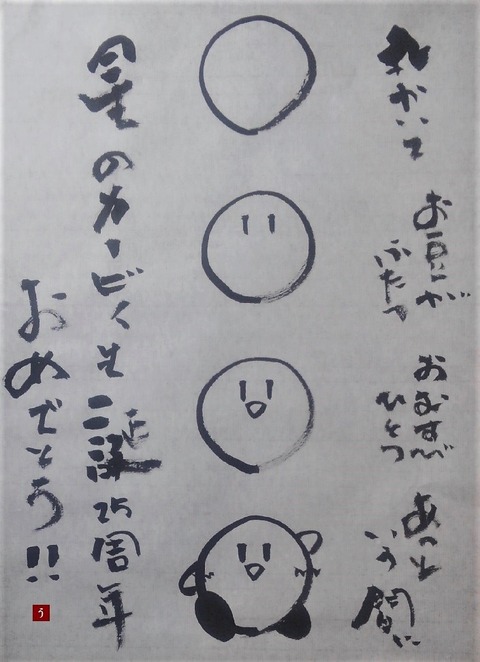 丸かいて
お豆が
ふたつ
おむすび
ひとつ
あっと
いう間に
星のカービィ生誕25周年
おめでとう!!
う